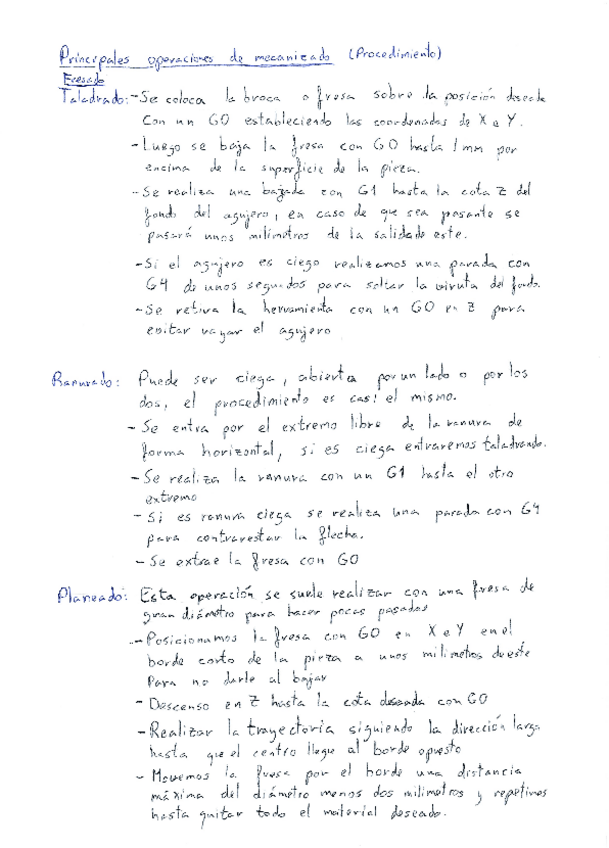 Principales operaciones de mecanizado (Procedimiento)
Fresado
Taladrado: - Se coloca la broca o fresa sobre la posición deseada
Con un G0 estableciendo las coordenadas de X e Y.
- Luego se baja la fresa con G0 hasta 1mm por
encima de la superficie de la pieza.
- Se realiza una bajada con G1 hasta la cota Z del
fondo del agujero, en caso de que sea pasante se
pasará unos milimetros de la salida de este.
- Si el agujero es ciego realizamos una parada con
G4 de unos segundos para soltar la viruta del fondo.
- Se retira la herramienta con un G0 en Z para
evitar rayar el agujero
Ranurado: Puede ser ciega, abierta por un lado o por los
dos, el procedimiento es casi el mismo.
- Se entra por el extremo libre de la ranura de
forma horizontal, si es ciega entraremos taladrando.
- Se realiza la ranura con un G1 hasta el otro
extremo
- Si es ranura ciega se realiza una parada con G4
para contrarestar la flecha.
- Se extrae la fresa con G0
Planeado: Esta operación se suele realizar con una fresa de
gran diámetro para hacer pocas pasadas
- Posicionamos la fresa con G0 en X e Y en el
borde corto de la pieza a unos milimetros de este
Para no darle al bajar
- Descenso en Z hasta la cota deseada con G0
- Realizar la trayectoria siguiendo la dirección larga
hasta que el centro llegue al borde opuesto
- Movemos la fresa por el borde una distancia
máxima del diámetro menos dos milimetros y repetimos
hasta quitar todo el material deseado.